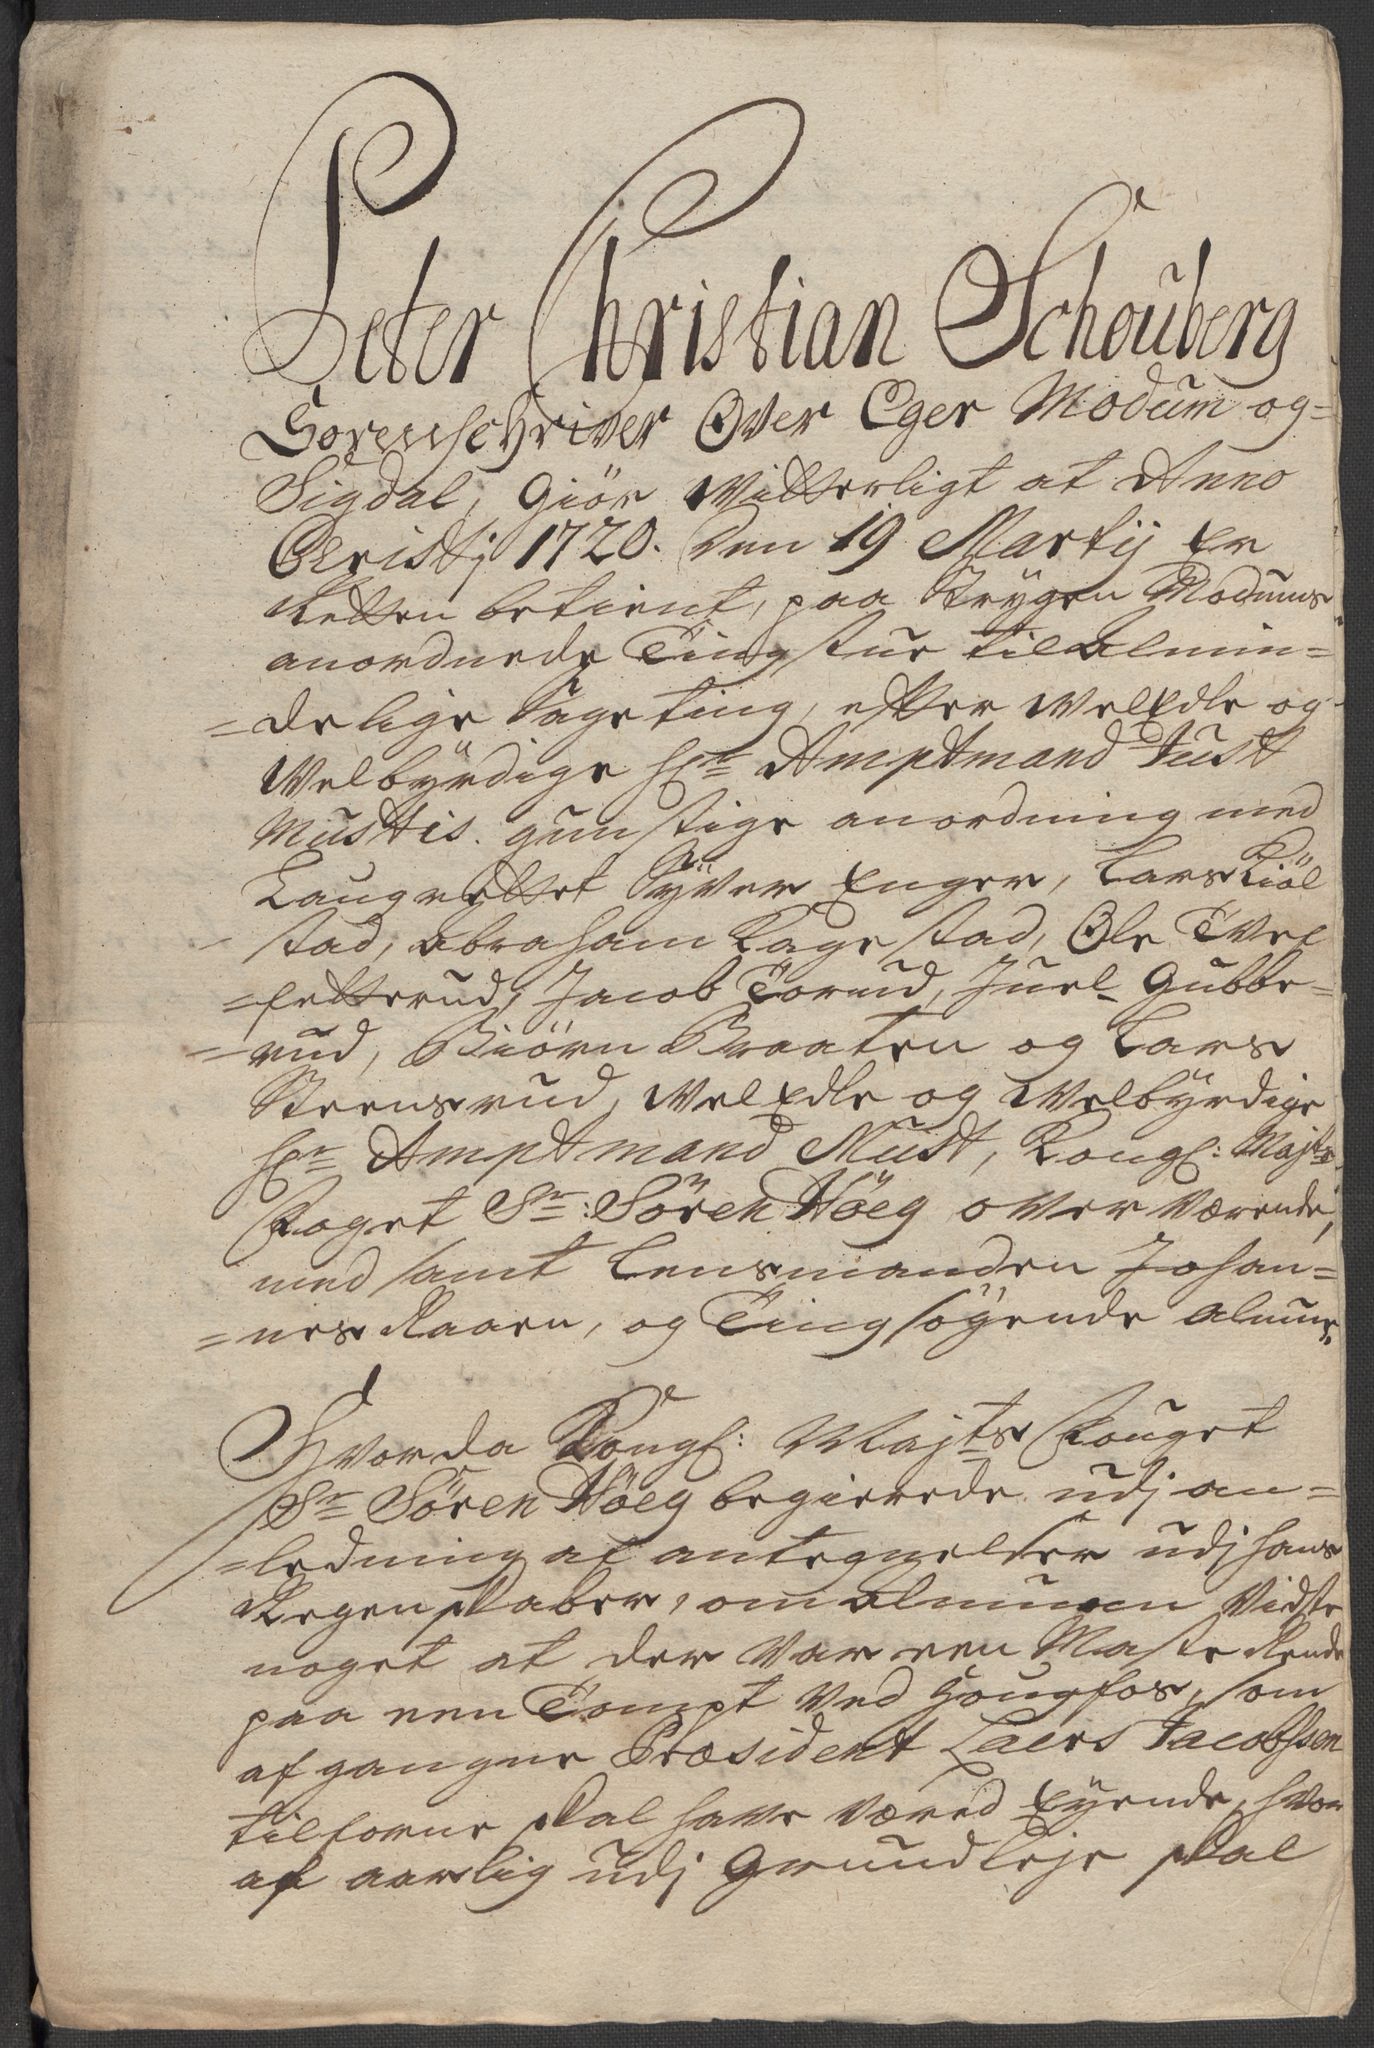 Peter Christian Schouberg
Sorenschriver Over Eger Modum og=
Sigdal, Giör Witterligt at Anno
Christj 1720. Den 19 Martij er
Retten betient, paa Krygen Modums
anordnede Tingstue til almin=
=delige Sageting, efter WelEdle og
Welbÿrdige Hr: Amptmand Just
Mustis. gunstige anordning med
Laugrettet Syver Enger, Lars Kiöl
stad, Abraham Kagestad, Ole Tvet
=fetterud, Jacob Torud, Juel Gubbe=
=rud, Biörn Braaten og Lars
Steensrud, WelEdle og Welbÿrdige
Hr: Amptmand Must, Kongl: Majts
Foget Sr: Sören Höeg overværende,
med samt Lensmanden Johan=
=nes Raaen, og Tingsögende almue,
Hvorda Kongl: Majts Fouget
Sr Sören Höeg begierede udj an=
=ledning af antegnelser udj hans
Regenskaber, om almuen Vidste
noget at der var een Maste Rende
paa een Tompt ved Hougfos, som
afgangne Præsident Laers Jacobsen
tilforne skal have værid Eyende, hvor
af aarlig udj Grundleje skal